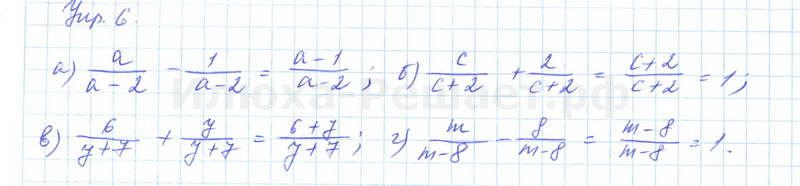 Упр. 6.
а) a/(a-2) - 1/(a-2) = (a-1)/(a-2); б) c/(c+2) + 2/(c+2) = (c+2)/(c+2) = 1;
в) 6/(y+7) + y/(y+7) = (6+y)/(y+7); г) m/(m-8) - 8/(m-8) = (m-8)/(m-8) = 1.
Илюха-Решает.рф